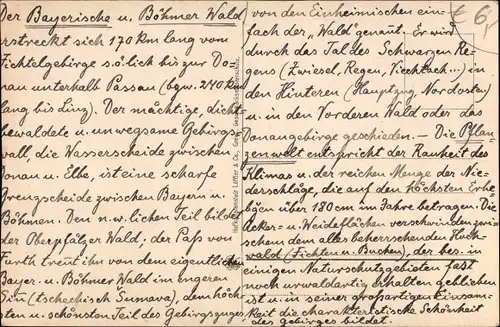 Der Bayerische u. Böhmer Wald
erstreckt sich 170 km lang vom
Fichtelgebirge s.ö.lich bis zur Do-
nau unterhalb Passau (bzw. 240 km
lang bis Linz). Der mächtige, dicht
bewaldete u. unwegsame Gebirgs-
wall, die Wasserscheide zwischen
Donau u. Elbe, ist eine scharfe
Grenzscheide zwischen Bayern u.
Böhmen. Den n.w.lichen Teil bildet
der Oberpfälzer Wald; der Paß von
Furth trennt ihn von dem eigentlichen
Bayer. u. Böhmer Wald im engeren
Sinn (tschechisch Sumava), dem höch-
sten u. schönsten Teil des Gebirgszuges,
von den Einheimischen ein-
fach der „Wald" genannt. Er wird
durch das Tal des Schwarzen Re-
gens (Zwiesel, Regen, Viechtach...) in
den Hinteren (Hauptzug, Nordosten)
u. in den Vorderen Wald oder das
Donaugebirge geschieden. — Die Pflan-
zenwelt entspricht der Rauheit des
Klimas u. der reichen Menge der Nie-
derschläge, die auf den höchsten Erhe-
bungen über 180 cm im Jahre betragen. Die
Äcker- u. Weideflächen verschwinden zwi-
schen dem alles beherrschenden Hoch-
wald (Fichten u. Buchen), der bes. in
einigen Naturschutzgebieten fast
noch urwaldartig erhalten geblieben
ist u. in seiner großartigen Einsam-
keit die charakteristische Schönheit
des Gebirges bildet.
€ 6,
Löffler & Co., Greiz